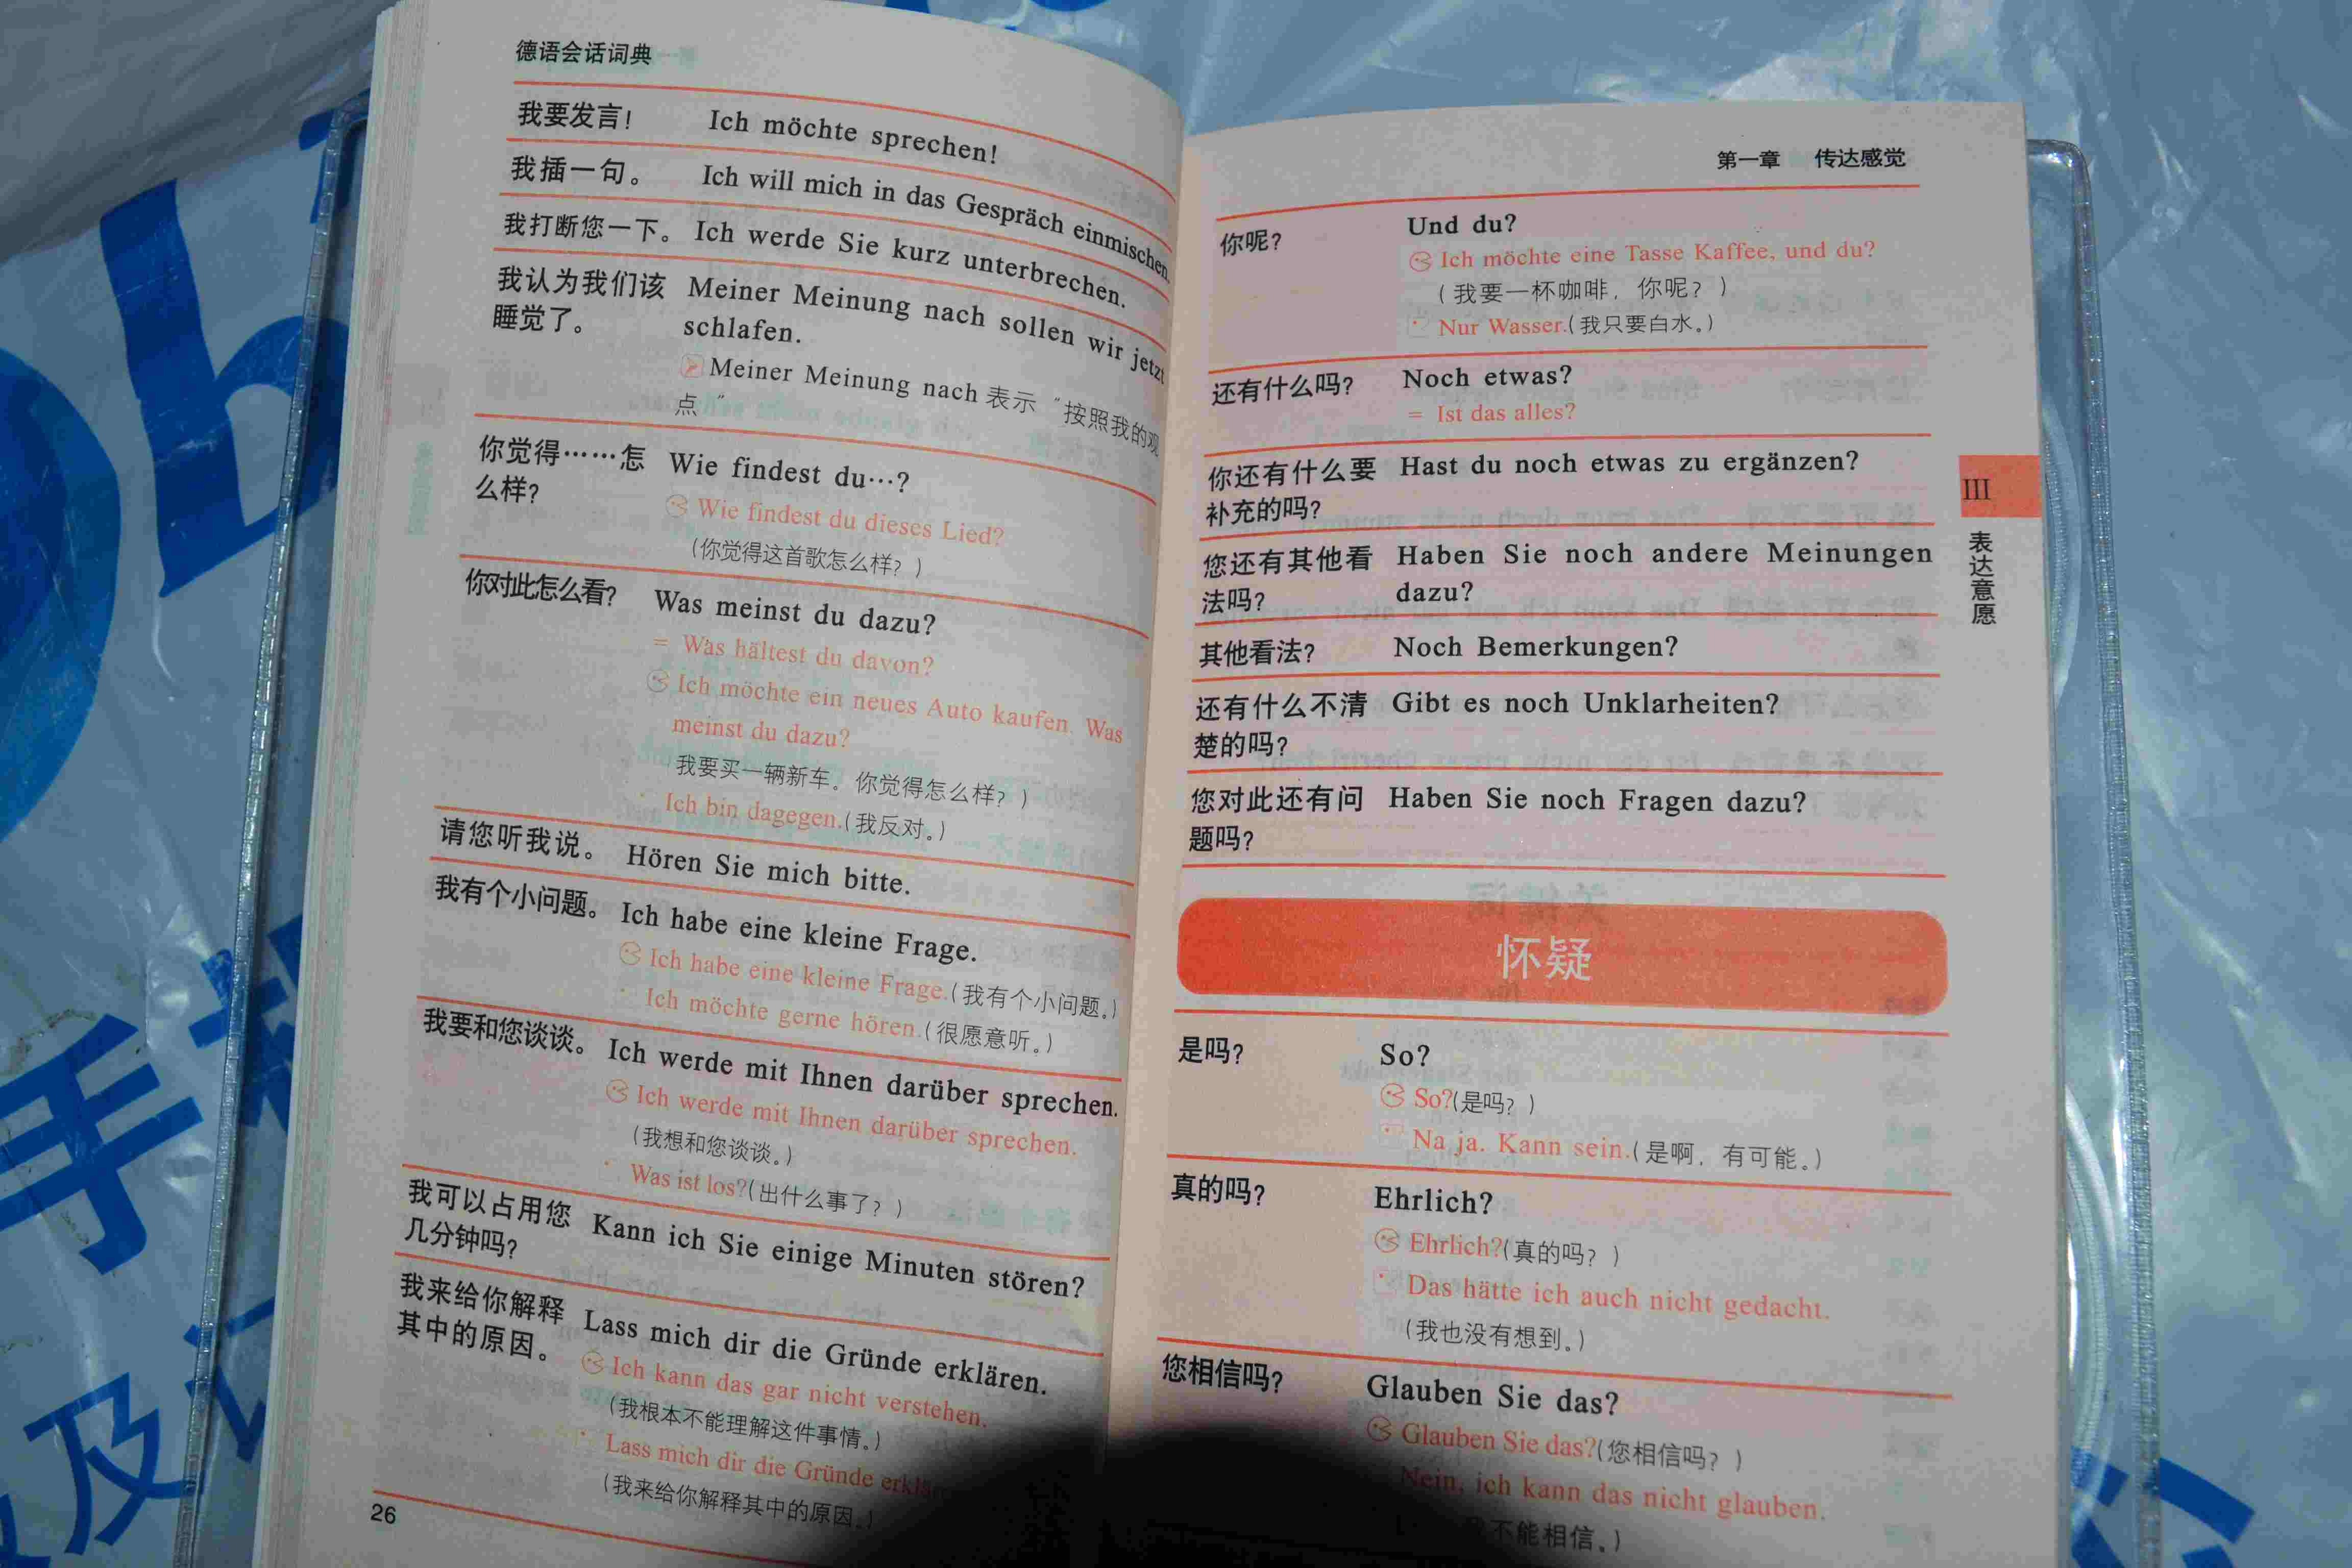 德语会话词典
我要发言! Ich möchte sprechen!
我插一句。 Ich will mich in das Gespräch einmischen.
我打断您一下。 Ich werde Sie kurz unterbrechen.
我认为我们该 Meiner Meinung nach sollen wir jetzt
睡觉了。 schlafen.
Meiner Meinung nach 表示“按照我的观
点”
你觉得……怎 Wie findest du…?
么样?
Wie findest du dieses Lied?
(你觉得这首歌怎么样? )
你对此怎么看? Was meinst du dazu?
= Was hältest du davon?
Ich möchte ein neues Auto kaufen. Was
meinst du dazu?
我要买一辆新车。你觉得怎么样? )
Ich bin dagegen.(我反对。)
请您听我说。 Hören Sie mich bitte.
我有个小问题。 Ich habe eine kleine Frage.
Ich habe eine kleine Frage.(我有个小问题。)
Ich möchte gerne hören.(很愿意听。)
我要和您谈谈。 Ich werde mit Ihnen darüber sprechen.
Ich werde mit Ihnen darüber sprechen.
(我想和您谈谈。)
Was ist los?(出什么事了? )
我可以占用您 Kann ich Sie einige Minuten stören?
几分钟吗?
我来给你解释 Lass mich dir die Gründe erklären.
其中的原因。
Ich kann das gar nicht verstehen.
(我根本不能理解这件事情。)
Lass mich dir die Gründe
(我来给你解释其中的原因。)
26
第一章 传达感觉
你呢? Und du?
Ich möchte eine Tasse Kaffee, und du?
(我要一杯咖啡, 你呢? )
Nur Wasser.(我只要白水。)
还有什么吗? Noch etwas?
= Ist das alles?
你还有什么要 Hast du noch etwas zu ergänzen?
补充的吗?
您还有其他看 Haben Sie noch andere Meinungen
法吗? dazu?
其他看法? Noch Bemerkungen?
还有什么不清 Gibt es noch Unklarheiten?
楚的吗?
您对此还有问 Haben Sie noch Fragen dazu?
题吗?
怀疑
是吗? So?
So?(是吗? )
Na ja. Kann sein.(是啊, 有可能。)
真的吗? Ehrlich?
Ehrlich?(真的吗? )
Das hätte ich auch nicht gedacht.
(我也没有想到。)
您相信吗? Glauben Sie das?
Glauben Sie das?(您相信吗? )
Nein, ich kann das nicht glauben.
不能相信。)
III
表达意愿
手
及